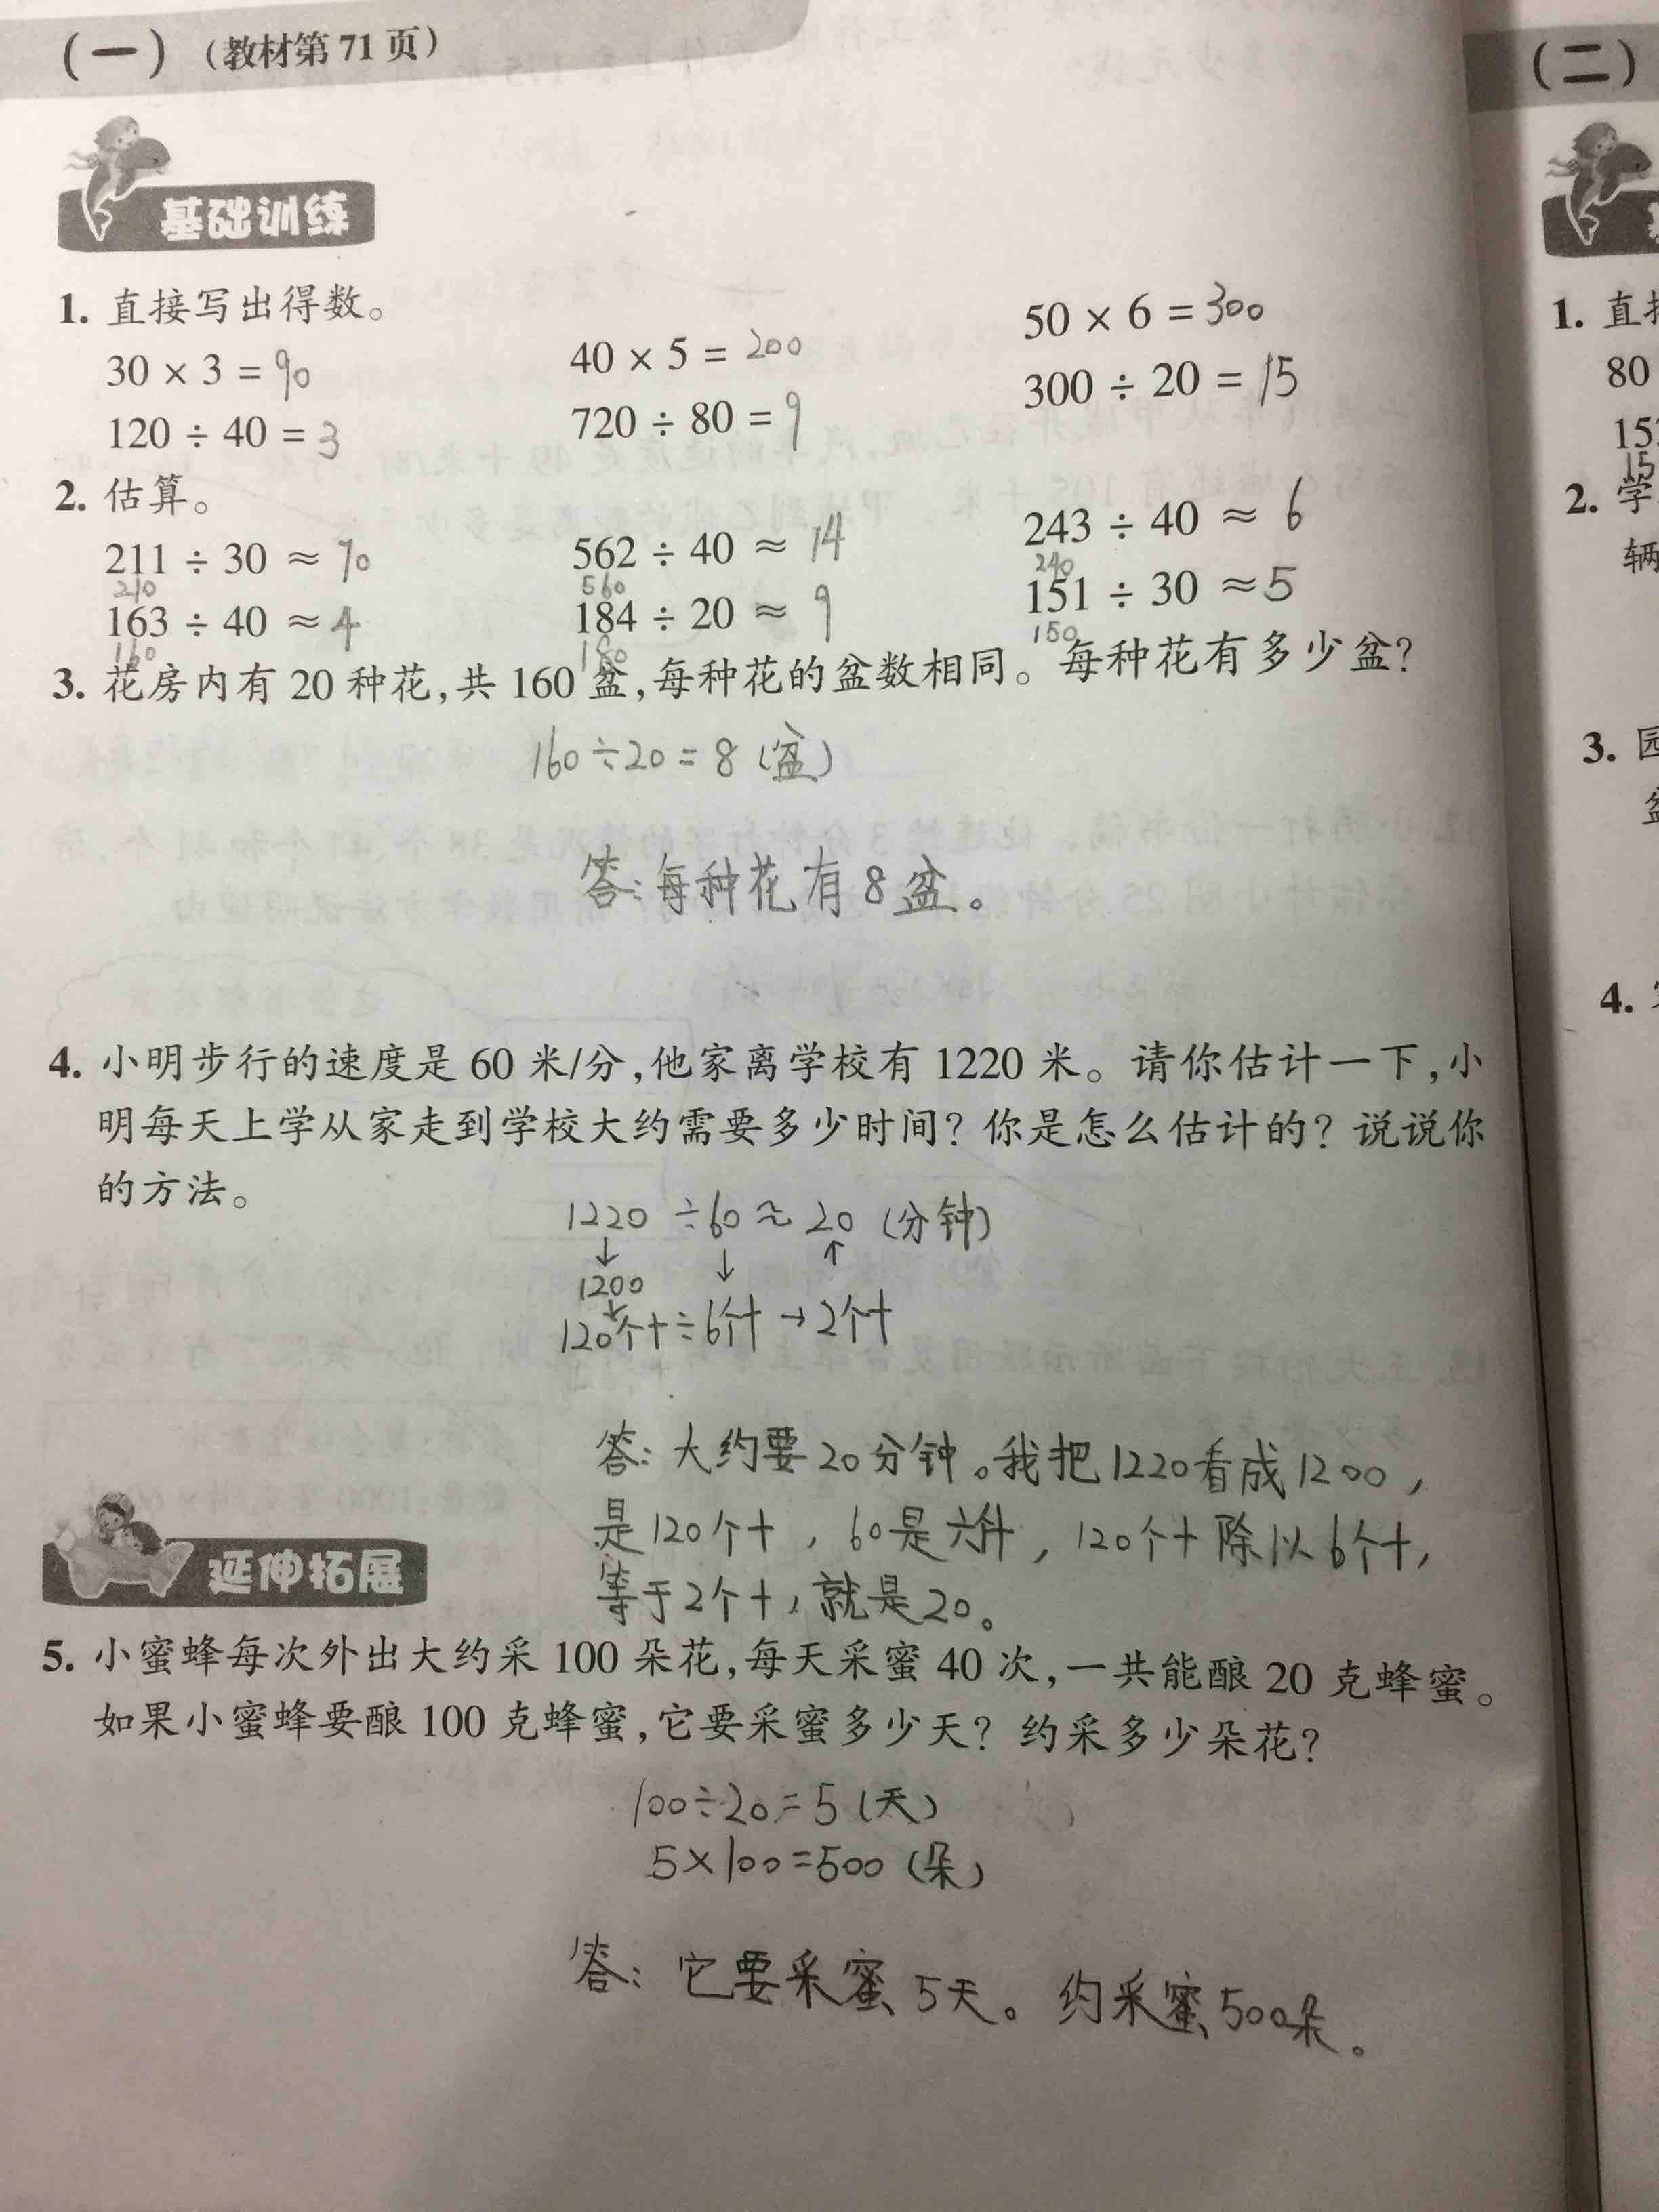 （一）（教材第71页）
基础训练
1. 直接写出得数。
30 × 3 = 90 40 × 5 = 200 50 × 6 = 300
120 ÷ 40 = 3 720 ÷ 80 = 9 300 ÷ 20 = 15
2. 估算。
211 ÷ 30 ≈ 70 562 ÷ 40 ≈ 14 243 ÷ 40 ≈ 6
210 560 240
163 ÷ 40 ≈ 4 184 ÷ 20 ≈ 9 151 ÷ 30 ≈ 5
160 180 150
3. 花房内有 20 种花,共 160 盆,每种花的盆数相同。每种花有多少盆?
160÷20=8（盆）
答:每种花有8盆。
4. 小明步行的速度是 60 米/分,他家离学校有 1220 米。请你估计一下,小
明每天上学从家走到学校大约需要多少时间? 你是怎么估计的? 说说你
的方法。
1220 ÷60≈20（分钟）
↓ ↓ ↑
1200
↓
120个十÷6个十→2个十
答: 大约要20分钟。我把1220看成1200,
是120个十, 60是六个十, 120个十除以6个十,
等于2个十,就是20。
延伸拓展
5. 小蜜蜂每次外出大约采 100 朵花,每天采蜜 40 次,一共能酿 20 克蜂蜜。
如果小蜜蜂要酿 100 克蜂蜜,它要采蜜多少天? 约采多少朵花?
100÷20=5（天）
5×100=500（朵）
答: 它要采蜜5天。约采蜜500朵。
（二）
1. 直
80
15
2. 学
辆
3.
4.